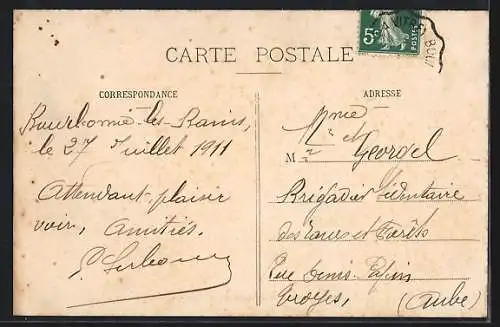 CARTE POSTALE
CORRESPONDANCE
ADRESSE
5c
POSTES
VITREY
Bourbonne-les-Bains,
le 27 Juillet 1911
Attendant plaisir
voir, amitiés.
Mme et
M r Georgel
Brigadier Sédentaire
des Eaux et Forêts
Rue Denis Papin
Troyes, (Aube)